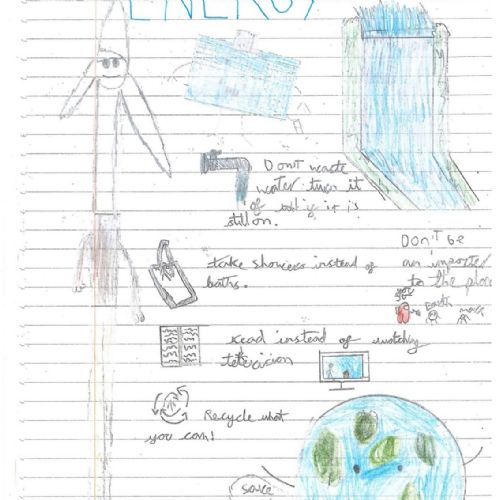 ENERGY
Don't waste
water turn it
of if it is
still on.
Don't be
an imposter
to the
take showers instead of
baths.
you
Earth
read instead of watching
television
Recycle what
you can!
save